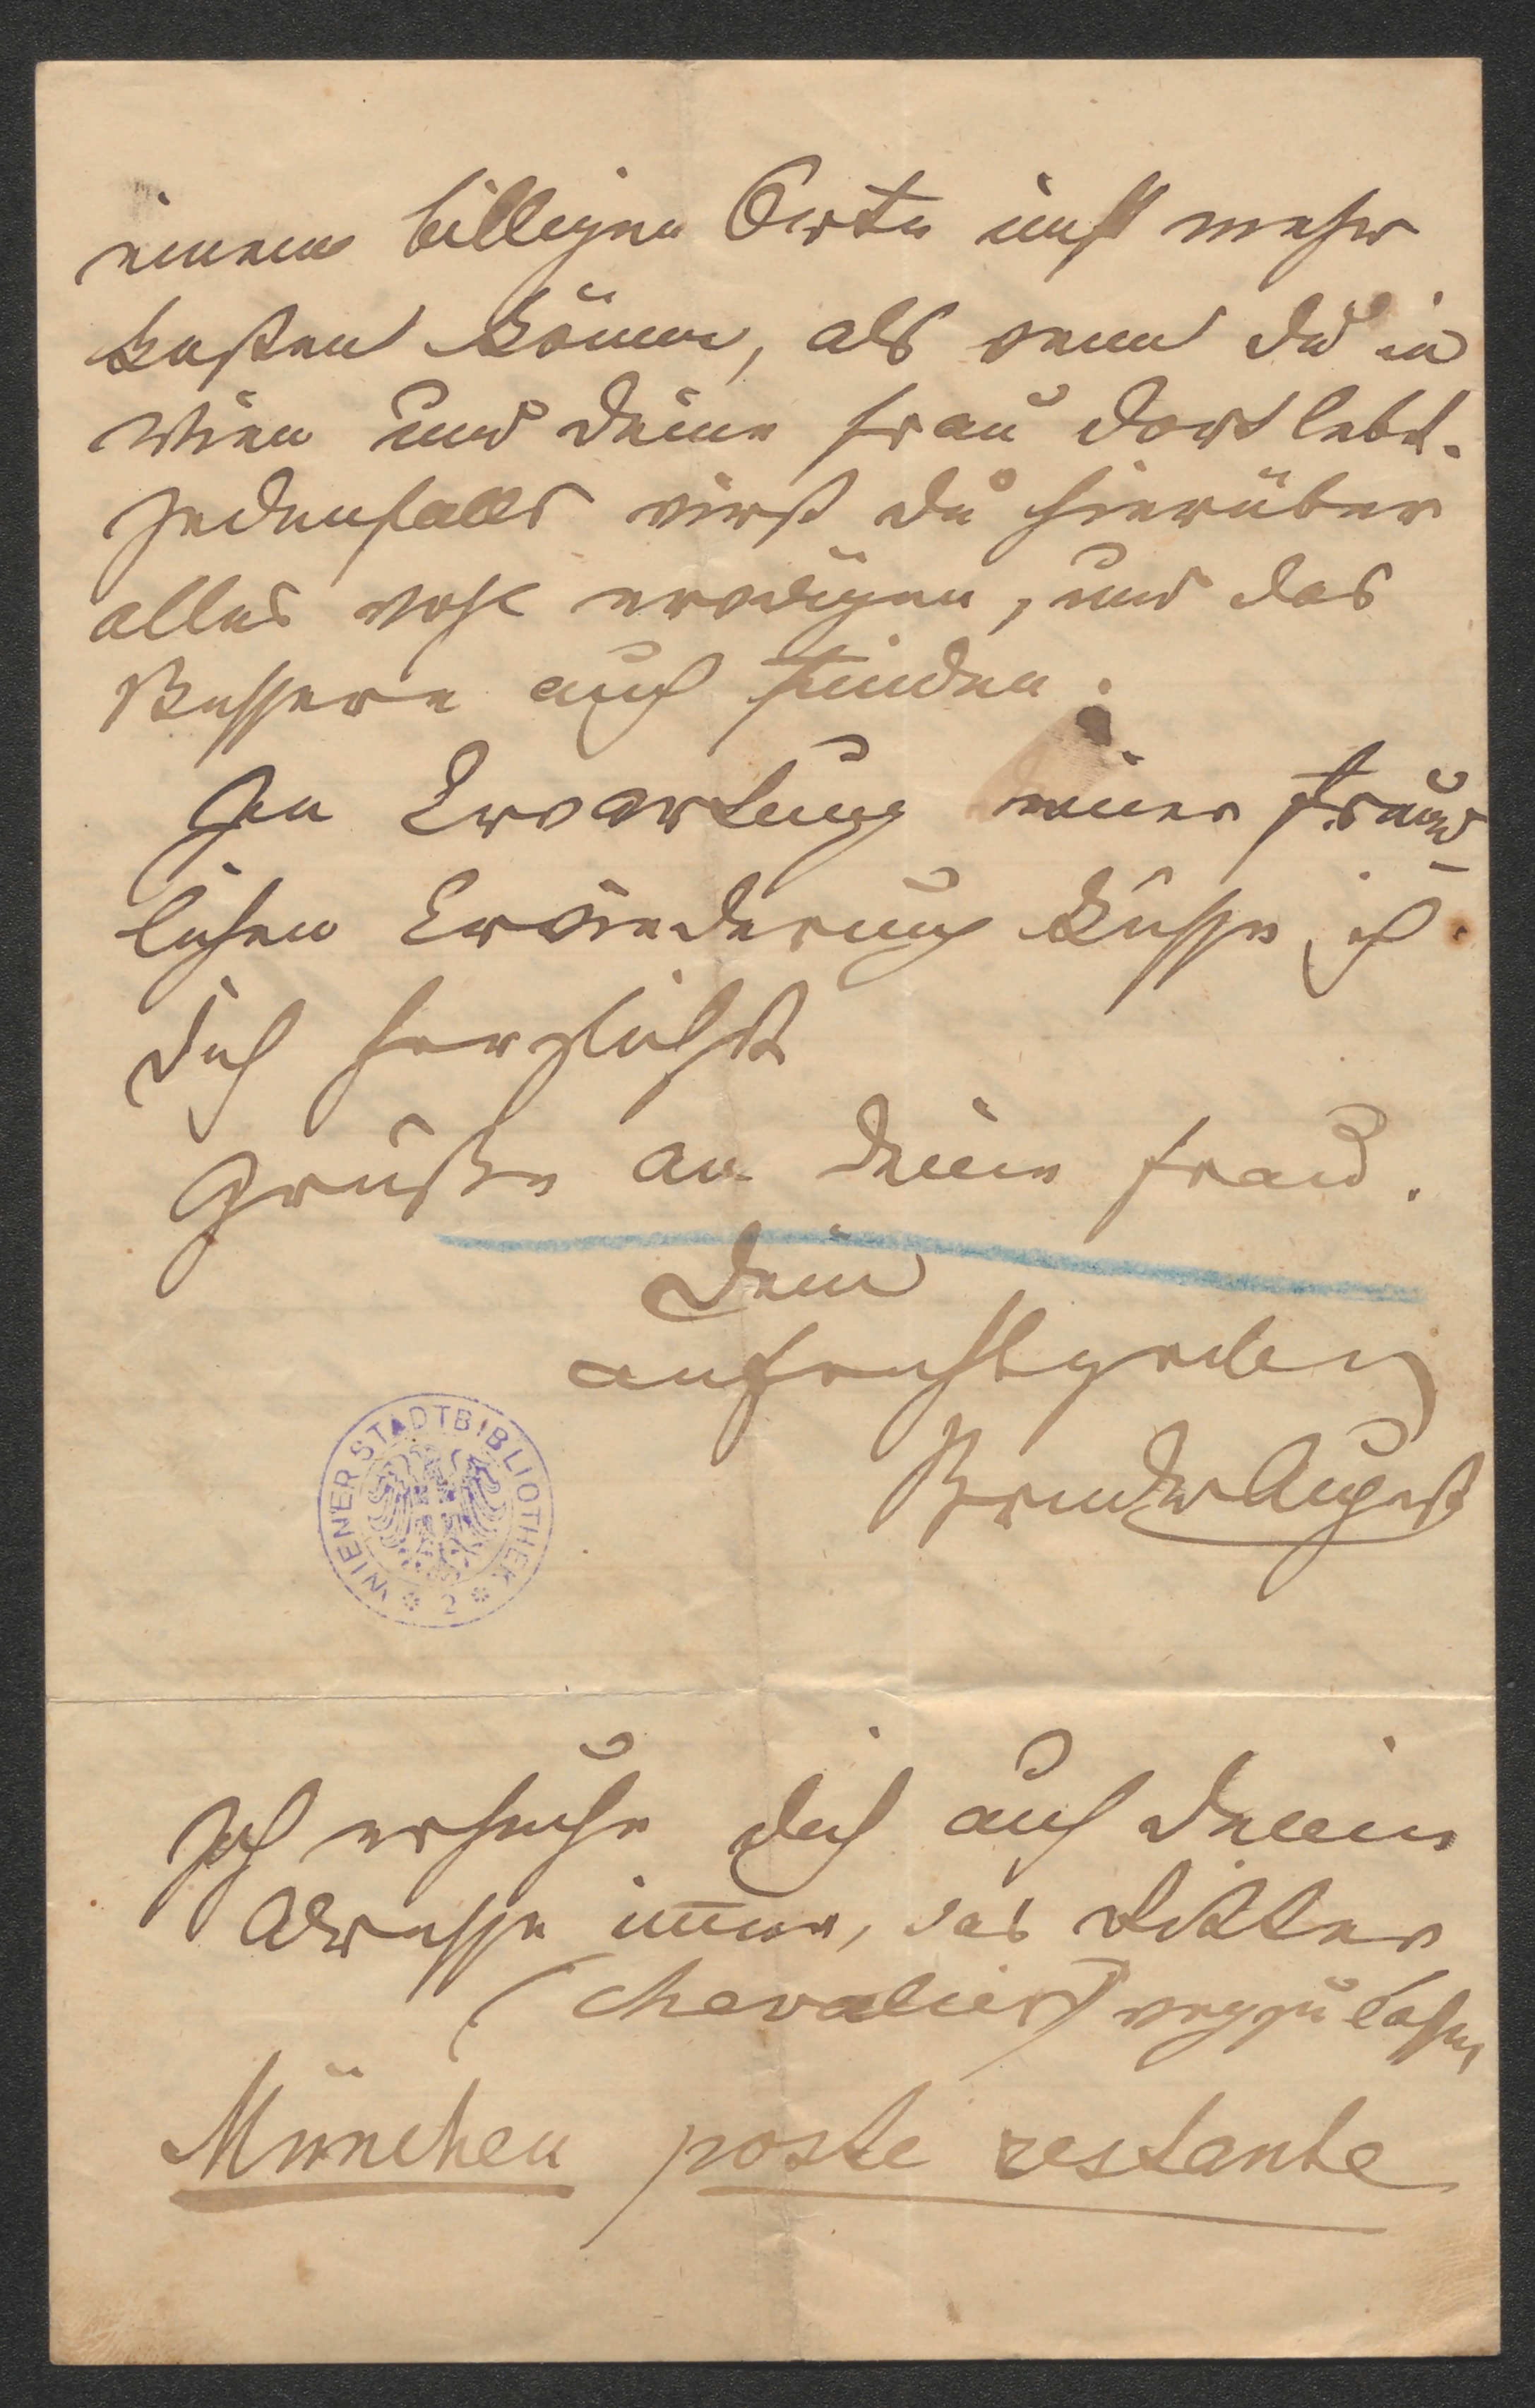 einem billigen Orte nicht mehr
kosten könne, als wenn du in
Wien und deine Frau dort lebt.
Jedenfalls wirst du hierüber
alles wohl erwägen, und das
Bessere auch finden.
In Erwartung einer freund-
lichen Erwiederung küsse ich
dich herzlichst
Grüße an deine Frau.
Dein
aufrichtig
Bruder August
WIENER STADTBIBLIOTHEK
2
Ich ersuche dich auf deine
Adresse immer, das Ritter
(Chevalier) wegzulassen
München poste restante